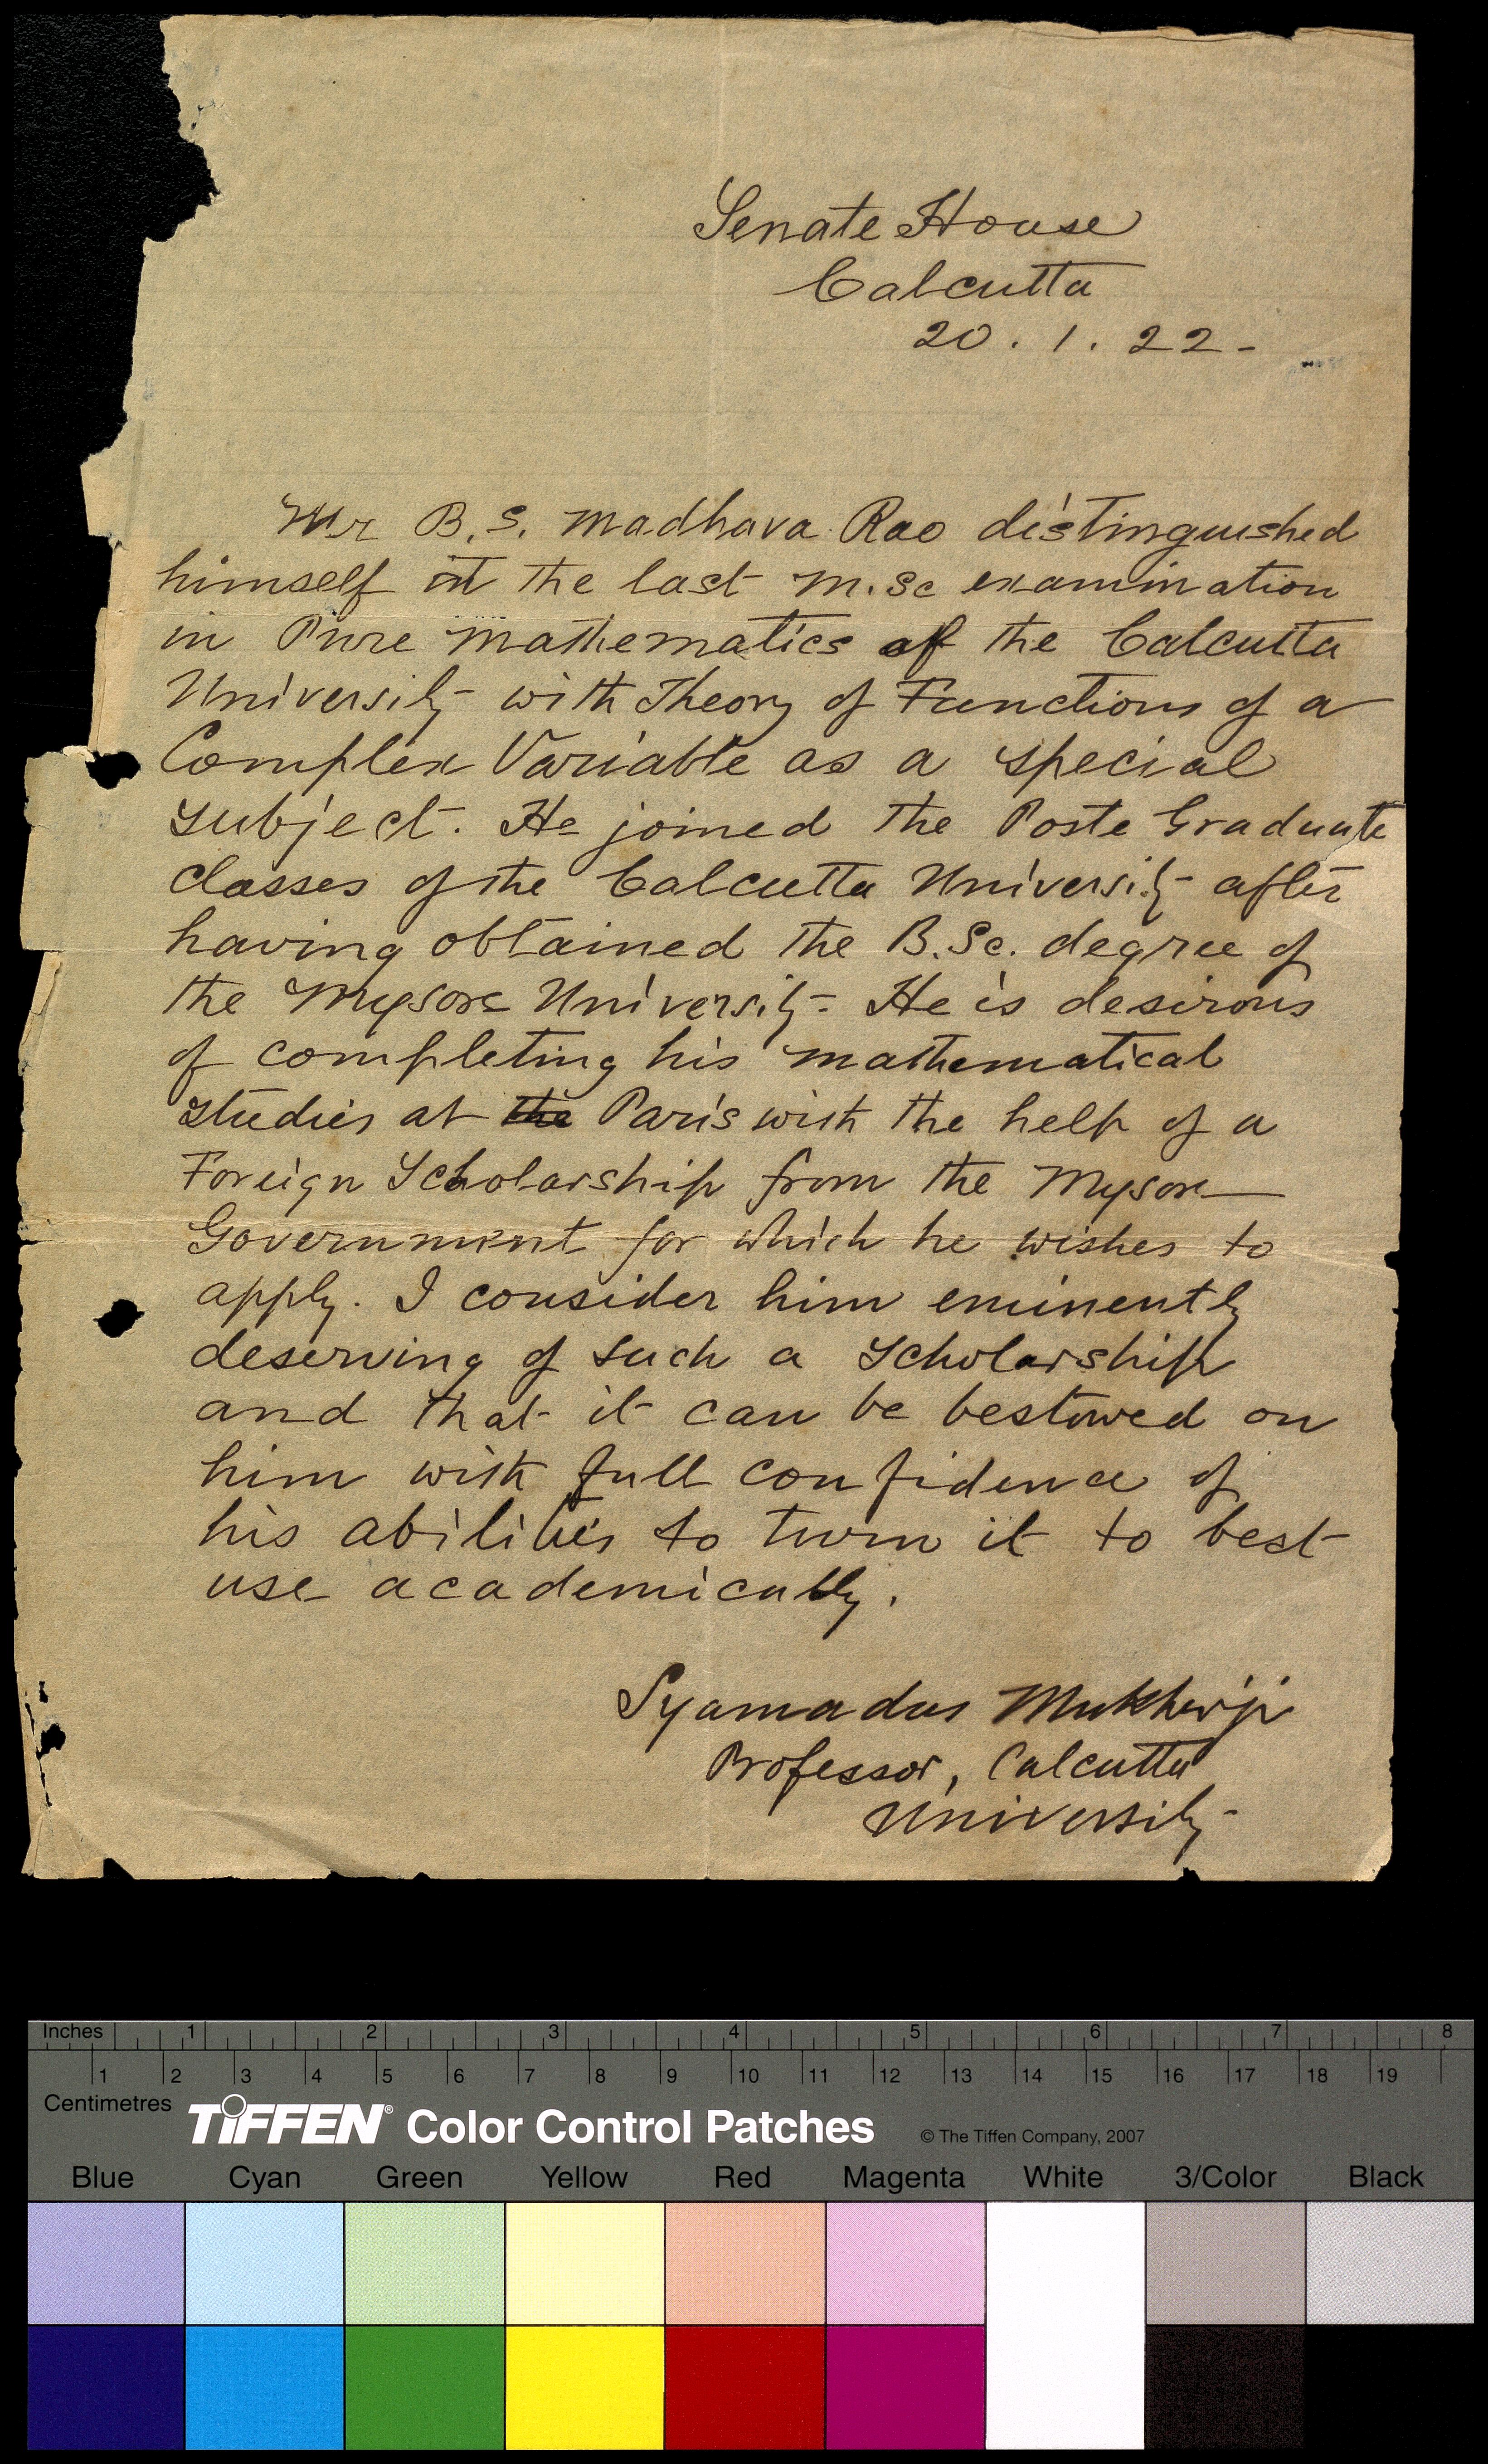 Senate House
Calcutta
20.1.22-
Mr B.S. Madhava Rao distinguished
himself in the last M.Sc examination
in Pure Mathematics of the Calcutta
University with Theory of Functions of a
Complex Variable as a special
subject. He joined the Poste Graduate
classes of the Calcutta University after
having obtained the B.Sc. degree of
the Mysore University- He is desirous
of completing his mathematical
studies at the Paris with the help of a
Foreign Scholarship from the Mysore
Government for which he wishes to
apply. I consider him eminently
deserving of such a scholarship
and that it can be bestowed on
him with full confidence of
his abilities to turn it to best
use academically.
Syamadas Mukherji
Professor, Calcutta
University
Inches 1 2 3 4 5 6 7 8
1 2 3 4 5 6 7 8 9 10 11 12 13 14 15 16 17 18 19
Centimetres
TIFFEN® Color Control Patches © The Tiffen Company, 2007
Blue Cyan Green Yellow Red Magenta White 3/Color Black